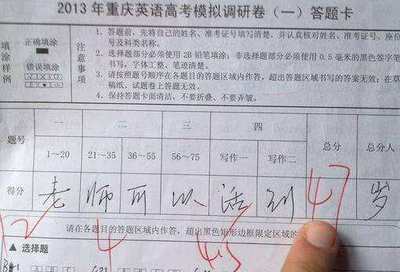 2013年重庆英语高考模拟调研卷（一）答题卡
填涂样例
正确填涂
错误填涂
注意事项
1. 答题前，先将自己的姓名、准考证号填写清楚，并认真核对姓名、准考证号、座位
号及科类名称。
2. 选择题部分必须使用2B铅笔填涂；非选择题部分必须使用0.5毫米的黑色签字笔
书写，字体工整，笔迹清楚。
3. 请按照题号顺序在各题目的答题区域内作答，超出答题区域书写的答案无效；在草
稿纸、试题卷上答题无效。
4. 保持答题卡面清洁，不要折叠、不要弄皱。
题号 一 二 三 四 总分 总分人
1~20 21~35 36~55 56~75 写作一 写作二
得分 老 师 可 以 活 到 47 岁
12 4 4.5
请在各题目的答题区域内作答，超出黑色矩形边框限定区域的
▲ 选择题